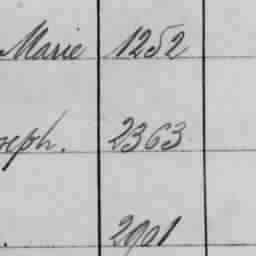 Marie 1252
seph. 2363
. 2901